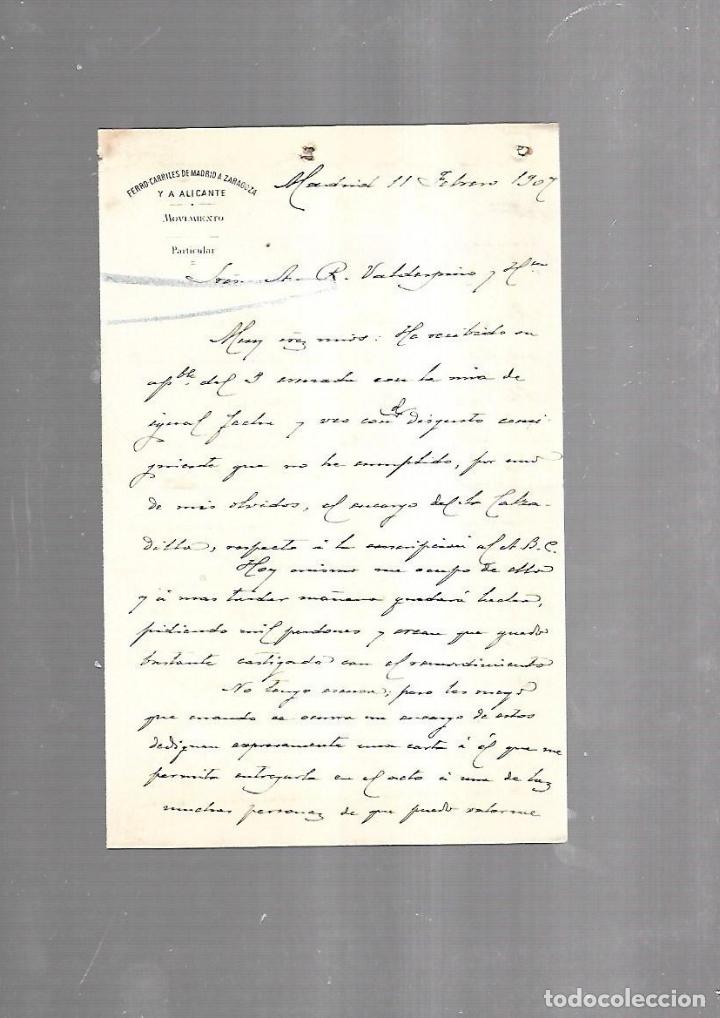 FERRO-CARRILES DE MADRID A ZARAGOZA
Y A ALICANTE
MOVIMIENTO
Particular
Madrid 11 Febrero 1907
Sres. A. R. Valdespino y Hno
Muy Sres mios: He recibido su
apble. del 9 cruzada con la mia de
igual fecha y veo con el disgusto consi-
guiente que no he cumplido, por uno
de mis olvidos, el encargo de la Calza-
dilla, respecto á la suscripcion al A. B. C.
Hoy mismo me ocupo de ello
y á mas tardar mañana quedará hecha,
pidiendo mil perdones y crean que quedo
bastante castigado con el remordimiento
No tengo escusa; pero les ruego
que cuando se ocurra un encargo de estos
dediquen expresamente una carta á él que me
permita entregarla en el acto á una de las
muchas personas de que puedo valerme
todocoleccion
todocoleccion.net